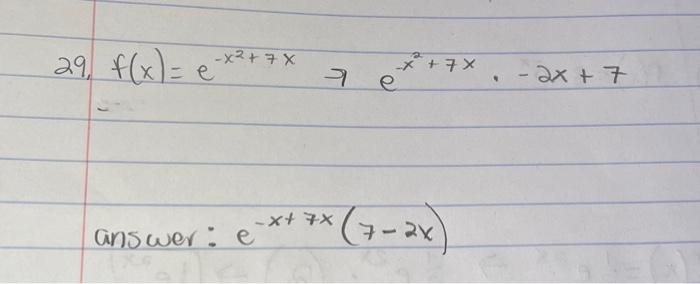 29, f(x) = e^{-x^2+7x} → e^{-x^2+7x} · -2x + 7
answer: e^{-x+7x} (7-2x)